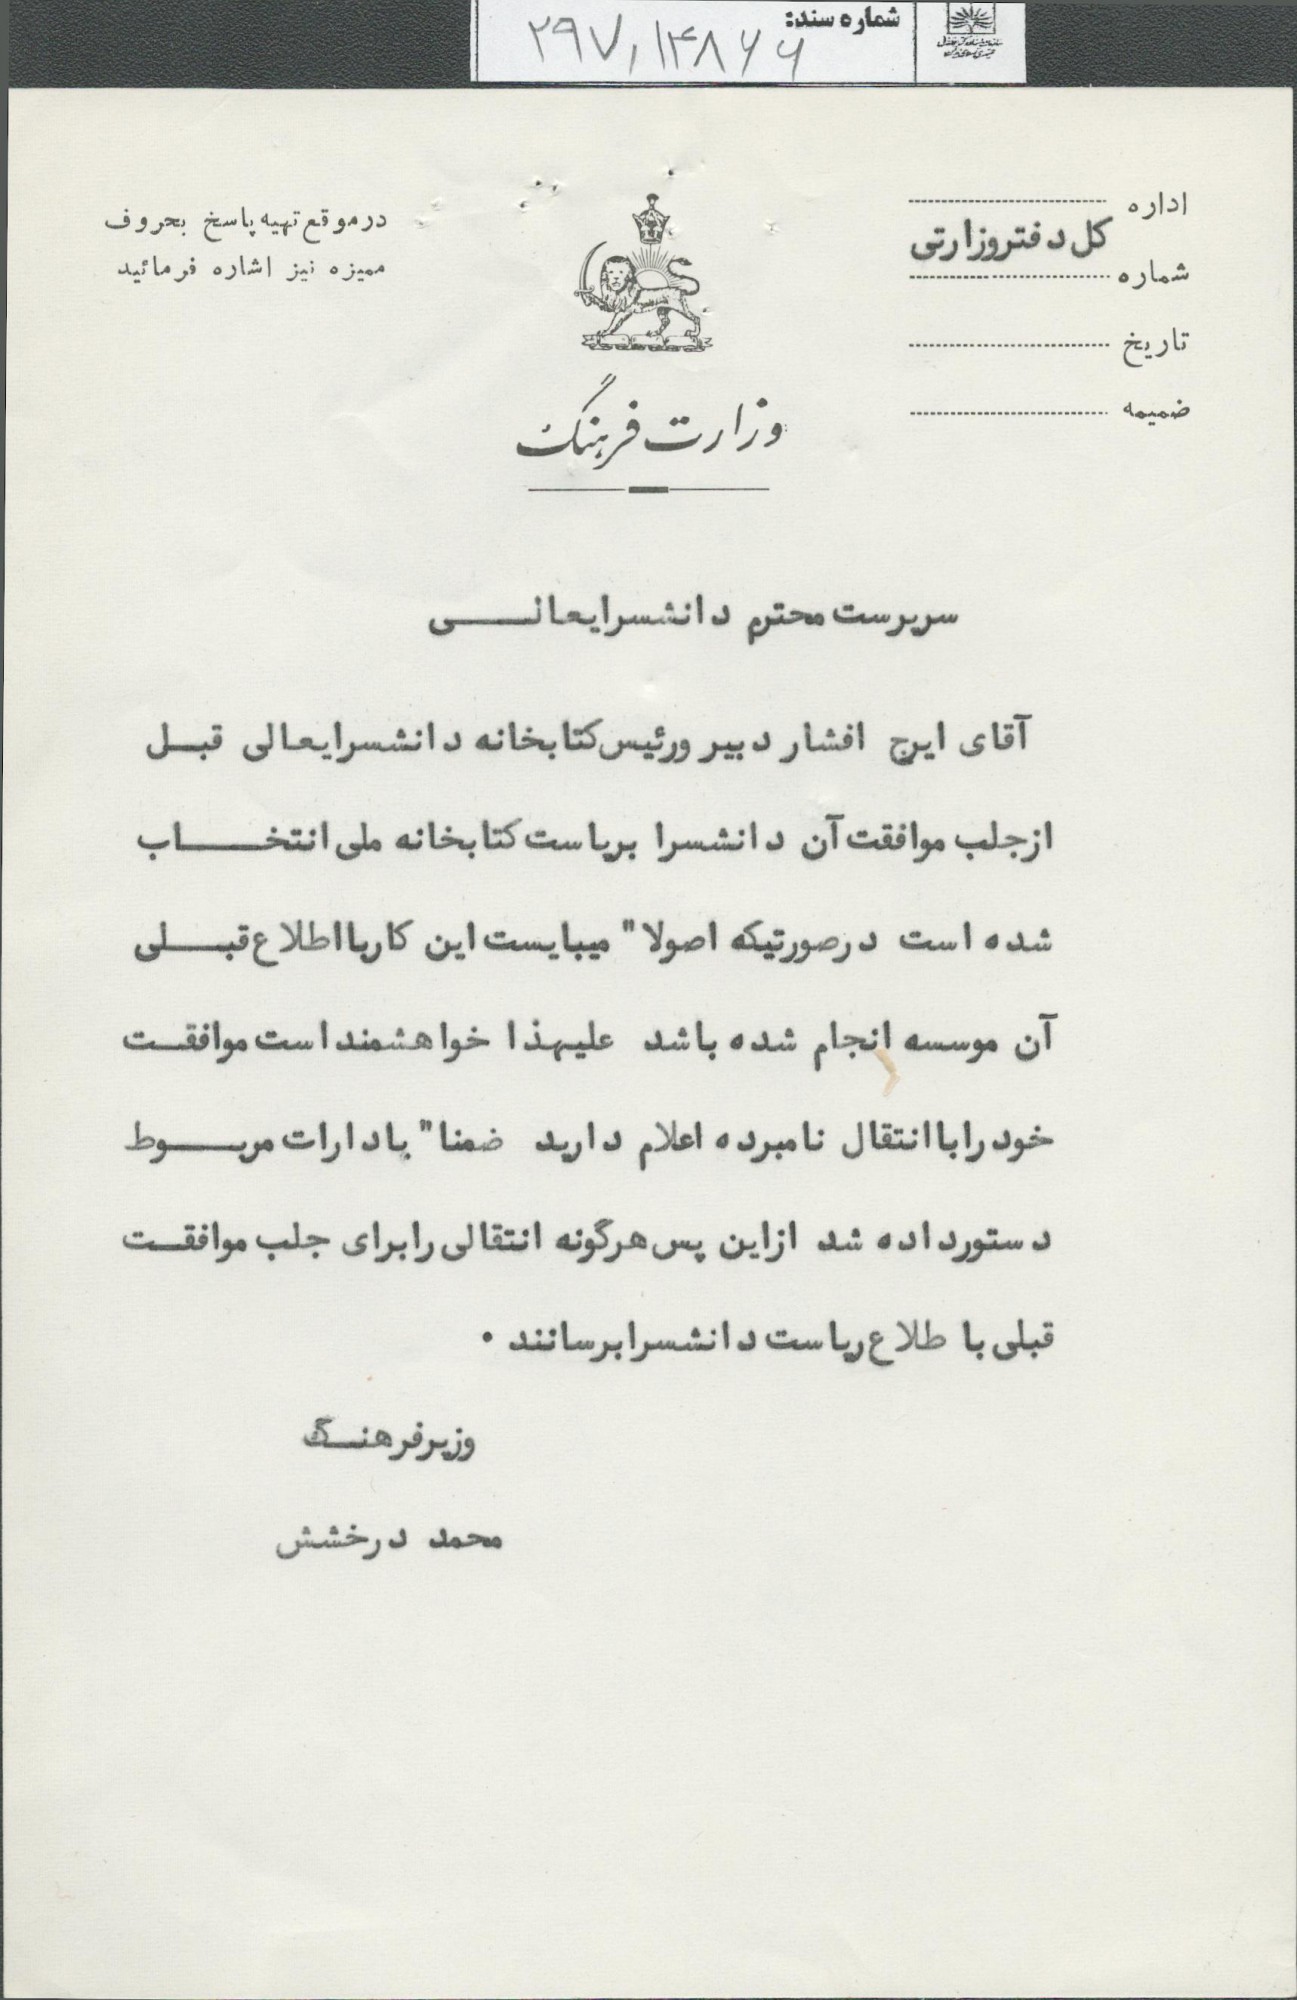 شماره سند:
۲۹۷٫۱۴۸۶۶
اداره
کل دفتر وزارتی
شماره
تاریخ
ضمیمه
در موقع تهیه پاسخ بحروف
ممیزه نیز اشاره فرمائید
وزارت فرهنگ
سرپرست محترم دانشسرایعالی
آقای ایرج افشار دبیر ورئیس کتابخانه دانشسرایعالی قبل
از جلب موافقت آن دانشسرا بریاست کتابخانه ملی انتخاب
شده است درصورتیکه اصولا" میبایست این کار با اطلاع قبلی
آن موسسه انجام شده باشد علیهذا خواهشمند است موافقت
خود را با انتقال نامبرده اعلام دارید ضمنا" بادارات مربوط
دستور داده شد از این پس هرگونه انتقالی را برای جلب موافقت
قبلی با طلاع ریاست دانشسرا برسانند .
وزیر فرهنگ
محمد درخشش